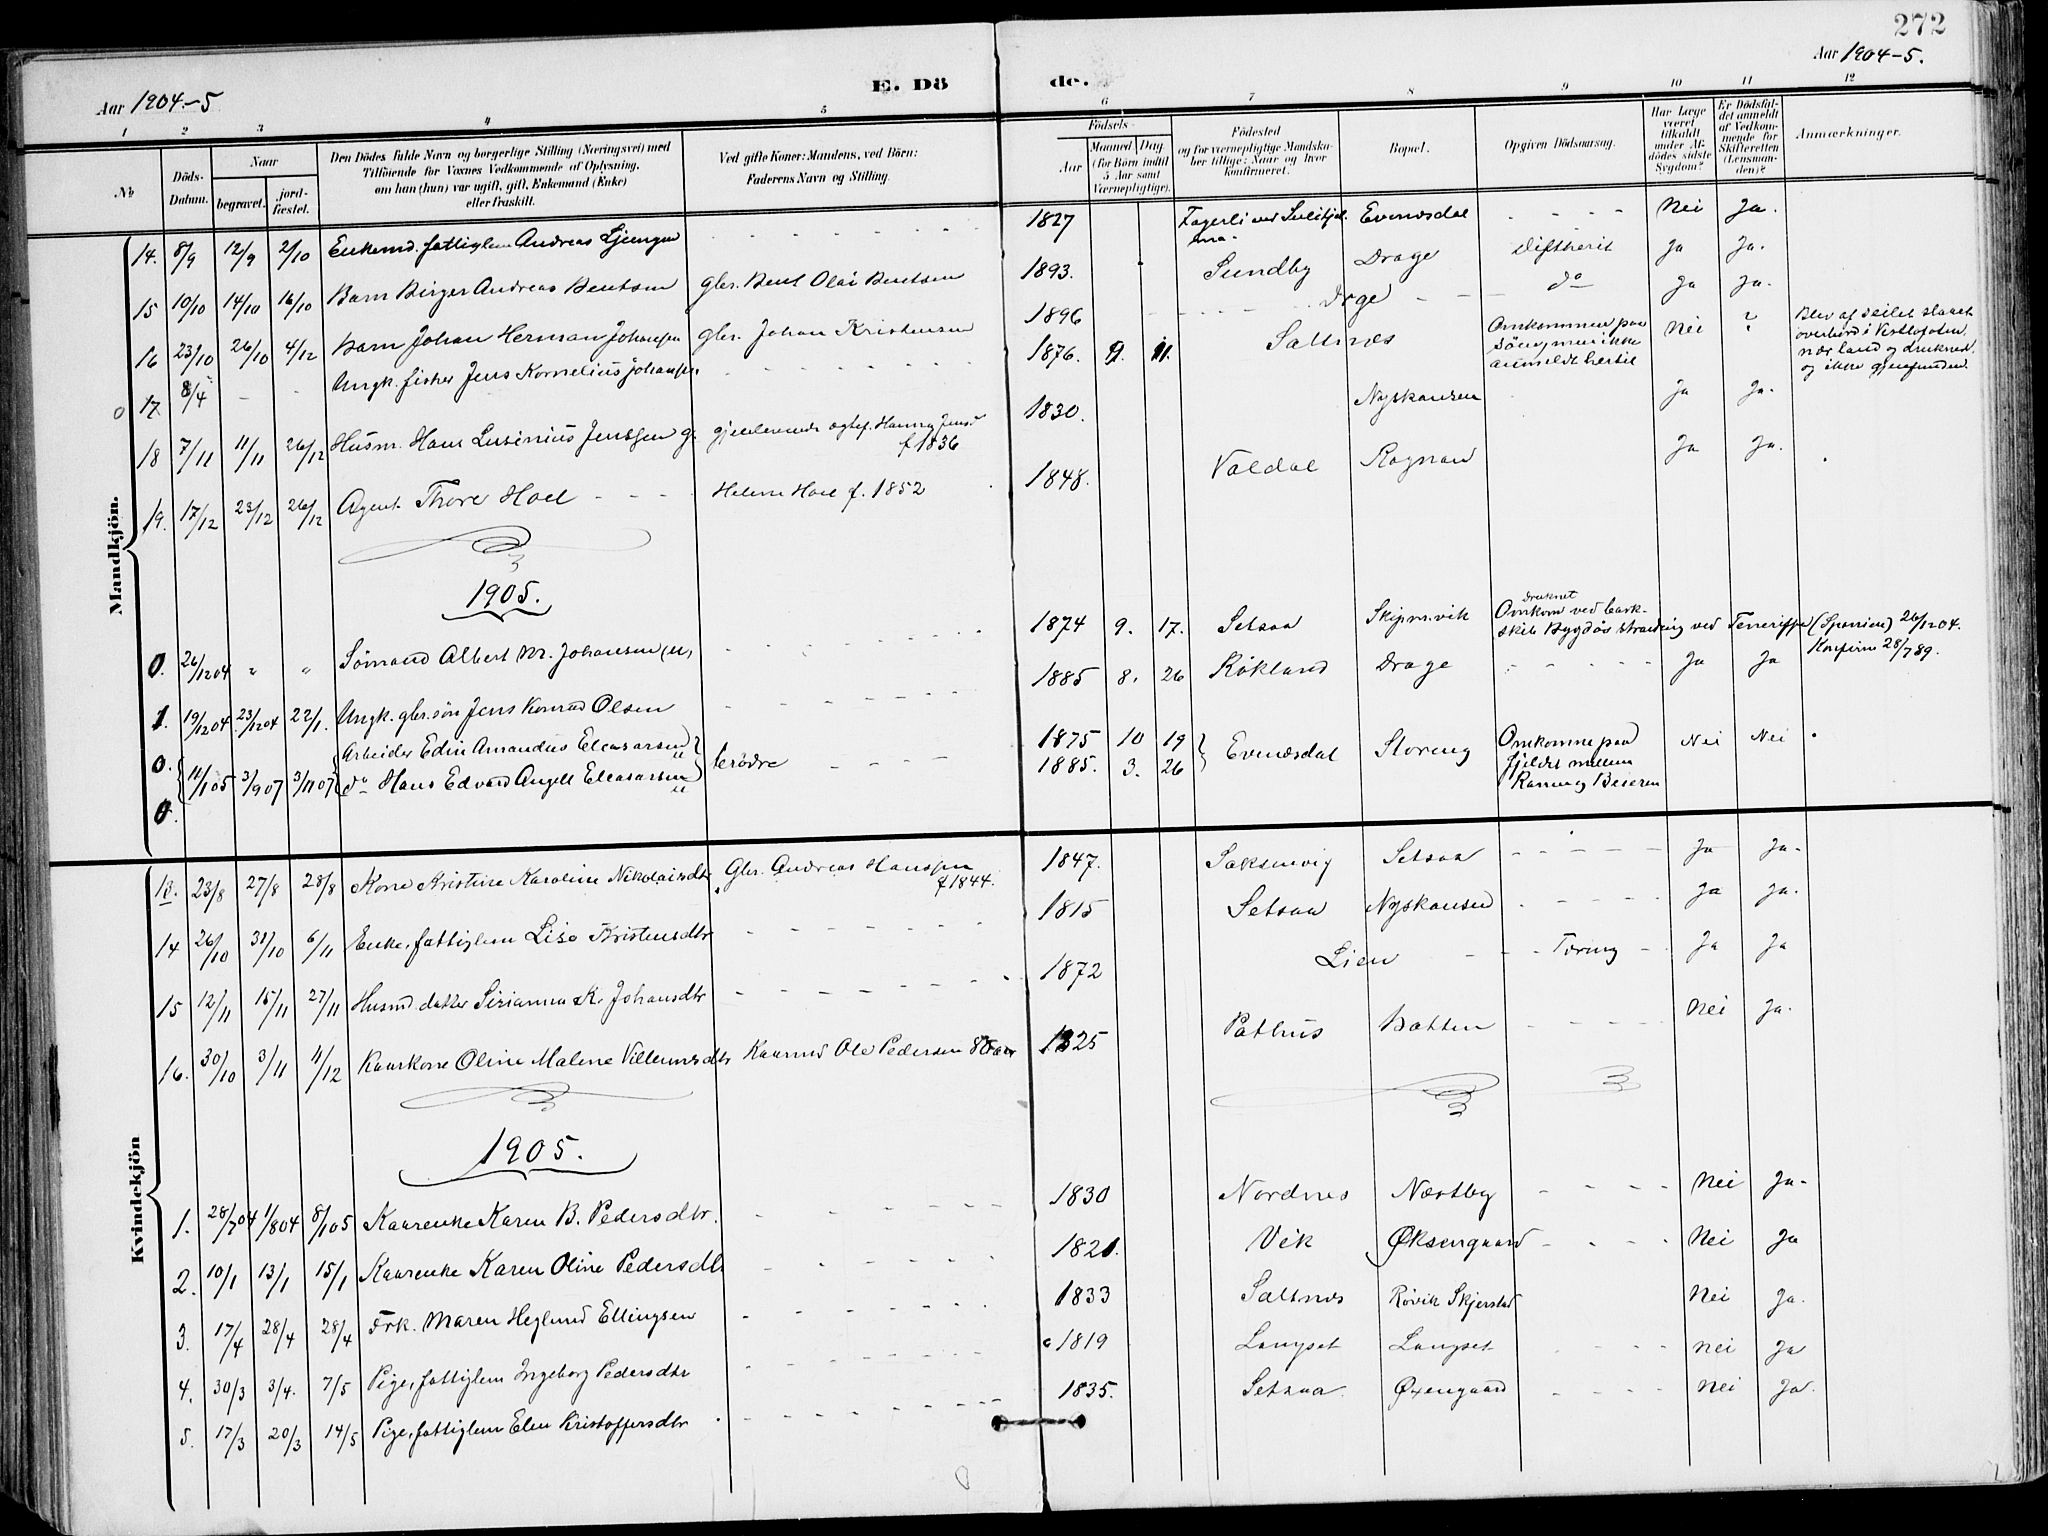 272
Aar 1904-5.
Aar 1904-5
E. Dö de.
1 2 3 4 5 6 7 8 9 10 11 12
№
Döds-Datum.
Naar
begravet.
jord-fæstet.
Den Dödes fulde Navn og borgerlige Stilling (Næringsvei) med
Tilföiende for Voxnes Vedkommende af Oplysning,
om han (hun) var ugift, gift, Enkemand (Enke)
eller fraskilt.
Ved gifte Koner: Mandens, ved Börn:
Faderens Navn og Stilling.
Födsels-
Aar
Maaned Dag
(for Börn indtil
5 Aar samt
Værnepligtige).
Födested
og for værnepligtige Mandska-
ber tillige: Naar og hvor
konfirmeret.
Bopæl.
Opgiven Dödsaarsag.
Har Læge
været
tilkaldt
under Af-
dödes sidste
Sygdom?
Er Dödsfal-
det anmeldt
af Vedkom-
mende for
Skifteretten
(Lensman-
den)?
Anmærkninger.
Mandkjön.
14. 8/9 12/9 2/10 Enkemd. fattiglem Andreas Ljungen - - - 1827 Fagerli ved Sulitjel-ma- Evenesdal - - - Nei Ja.
15 10/10 14/10 16/10 Barn Birger Andreas Bentsen gbr. Bent Olai Bentsen 1893. Sundby Drage Diftherit Ja Ja.
16 23/10 26/10 4/12 Barn Johan Herman Johansen gbr. Johan Kristensen 1896 Drage - - do Ja Ja.
17 8/4 - - Ungk. fisker Jens Kornelius Johansen - - - 1876. 9. 11. Saltnes Omkommen paa
Söen, men ikke
anmeldt hertil Nei ? Blev af seilet slaaet
overbord i Vestlofoten
nær land og druknede.
og ikke gjenfunden.
18 7/11 11/11 26/12 Husm. Hans Lusinius Jenssen g. gjenlevende ægtef. Hanna Jens.
f. 1836 1830. Nyskansen Ja Ja.
19. 17/12 23/12 26/12 Agent Thore Hoel - - - Helene Hoel f. 1852 1848. Valdal Rognan Ja Ja.
1905.
0. 26/12 04 " " Sömand Albert M. Johansen (u) - - - 1874 9. 17. Setsaa Skipmvik Druknet
Omkom ved bark-
skib Bygdös stranding ved Teneriffe (Spanien) 26/12 04.
Konfirm 28/7 89.
1. 19/12 04 23/12 04 22/1. Ungk. gbr.sön Jens Konrad Olsen - - - 1885 8. 26 Kökland Drage - - - Ja Ja
0. 11/1 05 3/9 07 3/11 07 Arbeider Edin Amandus Eleasarsen u brödre - - - 1875 10 19 Evenesdal Storeng Omkomne paa
fjeldet mellem
Ranen og Beiaren Nei Nei
0. do Hans Edvard Angell Eleasarsen u 1885. 3. 26
Kvindekjön
13. 23/8 27/8 28/8 Kone Kristine Karoline Nikolaisdtr. Gbr. Andreas Hanssen
f 1844. 1847. Saksenvig Setsaa - - - Ja Ja.
14 26/10 31/10 6/11 Enke, fattiglem Lise Kristensdtr - - - 1815 Setsaa Nyskansen - - - Ja Ja.
15 12/11 15/11 27/11 Husmd. datter Sirianna K. Johansdtr - - - 1872 Lien - - - Tæring Ja Ja
16. 30/10 3/11 4/12 Kaarkone Oline Malene Villumsdtr Kaarmd Ole Pedersen 80 aar 1825 Pothus Botten - - - Nei Ja.
1905.
1. 28/7 04 1/8 04 8/1 05 Kaarenke Karen B. Pedersdtr. - - - 1830 Nordnes Næstby - - - Nei Ja.
2. 10/1 13/1 15/1 Kaarenke Karen Oline Pedersdtr - - - 1821. Vik Øksengaard - - - Nei Ja
3. 17/4 28/4 28/4 Frk. Maren Heglund Ellingsen - - - 1833 Saltnes Røvik Skjerstad Nei Ja.
4. 30/3 3/4. 7/5 Pige, fattiglem Ingeborg Pedersdtr - - - 1819 Langset Langset - - - Nei Ja
5. 17/3 20/3 14/5 Pige, fattiglem Elen Kristoffersdtr - - - 1835. Setsaa Øxengaard - - - Nei Ja.